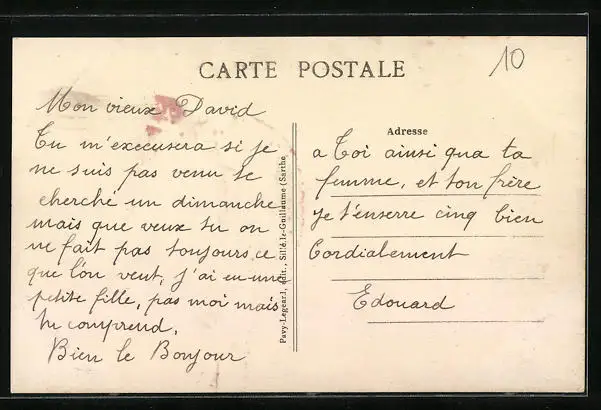 10
CARTE POSTALE
Mon vieux David
Tu m'execusera si je
ne suis pas venu te
cherché un dimanche
mais que veux tu on
ne fait pas toujours ce
que l'on veut, j'ai eu une
petite fille, pas moi mais
tu comprend,
Bien le Bonjour
Pavy-Legeard, édit., Sillé-le-Guillaume (Sarthe)
Adresse
a Toi ainsi qua ta
femme, et ton frère
je t'enserre cinq bien
Cordialement
Edouard